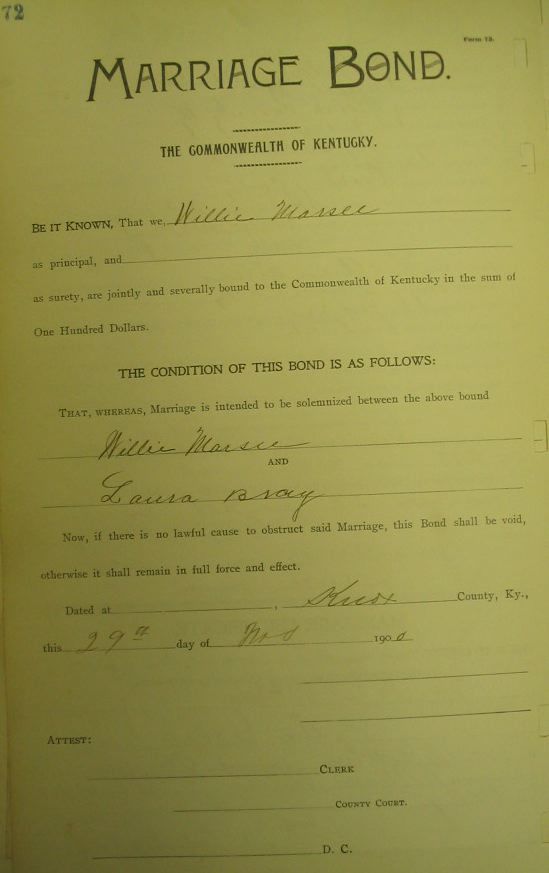 72
Form 73.
MARRIAGE BOND.
THE COMMONWEALTH OF KENTUCKY.
BE IT KNOWN, That we, Willie Marsee
as principal, and
as surety, are jointly and severally bound to the Commonwealth of Kentucky in the sum of
One Hundred Dollars.
THE CONDITION OF THIS BOND IS AS FOLLOWS:
THAT, WHEREAS, Marriage is intended to be solemnized between the above bound
Willie Marsee
AND
Laura Bray
Now, if there is no lawful cause to obstruct said Marriage, this Bond shall be void,
otherwise it shall remain in full force and effect.
Dated at , Knox County, Ky.,
this 29th day of 1900
ATTEST:
CLERK
COUNTY COURT.
D. C.